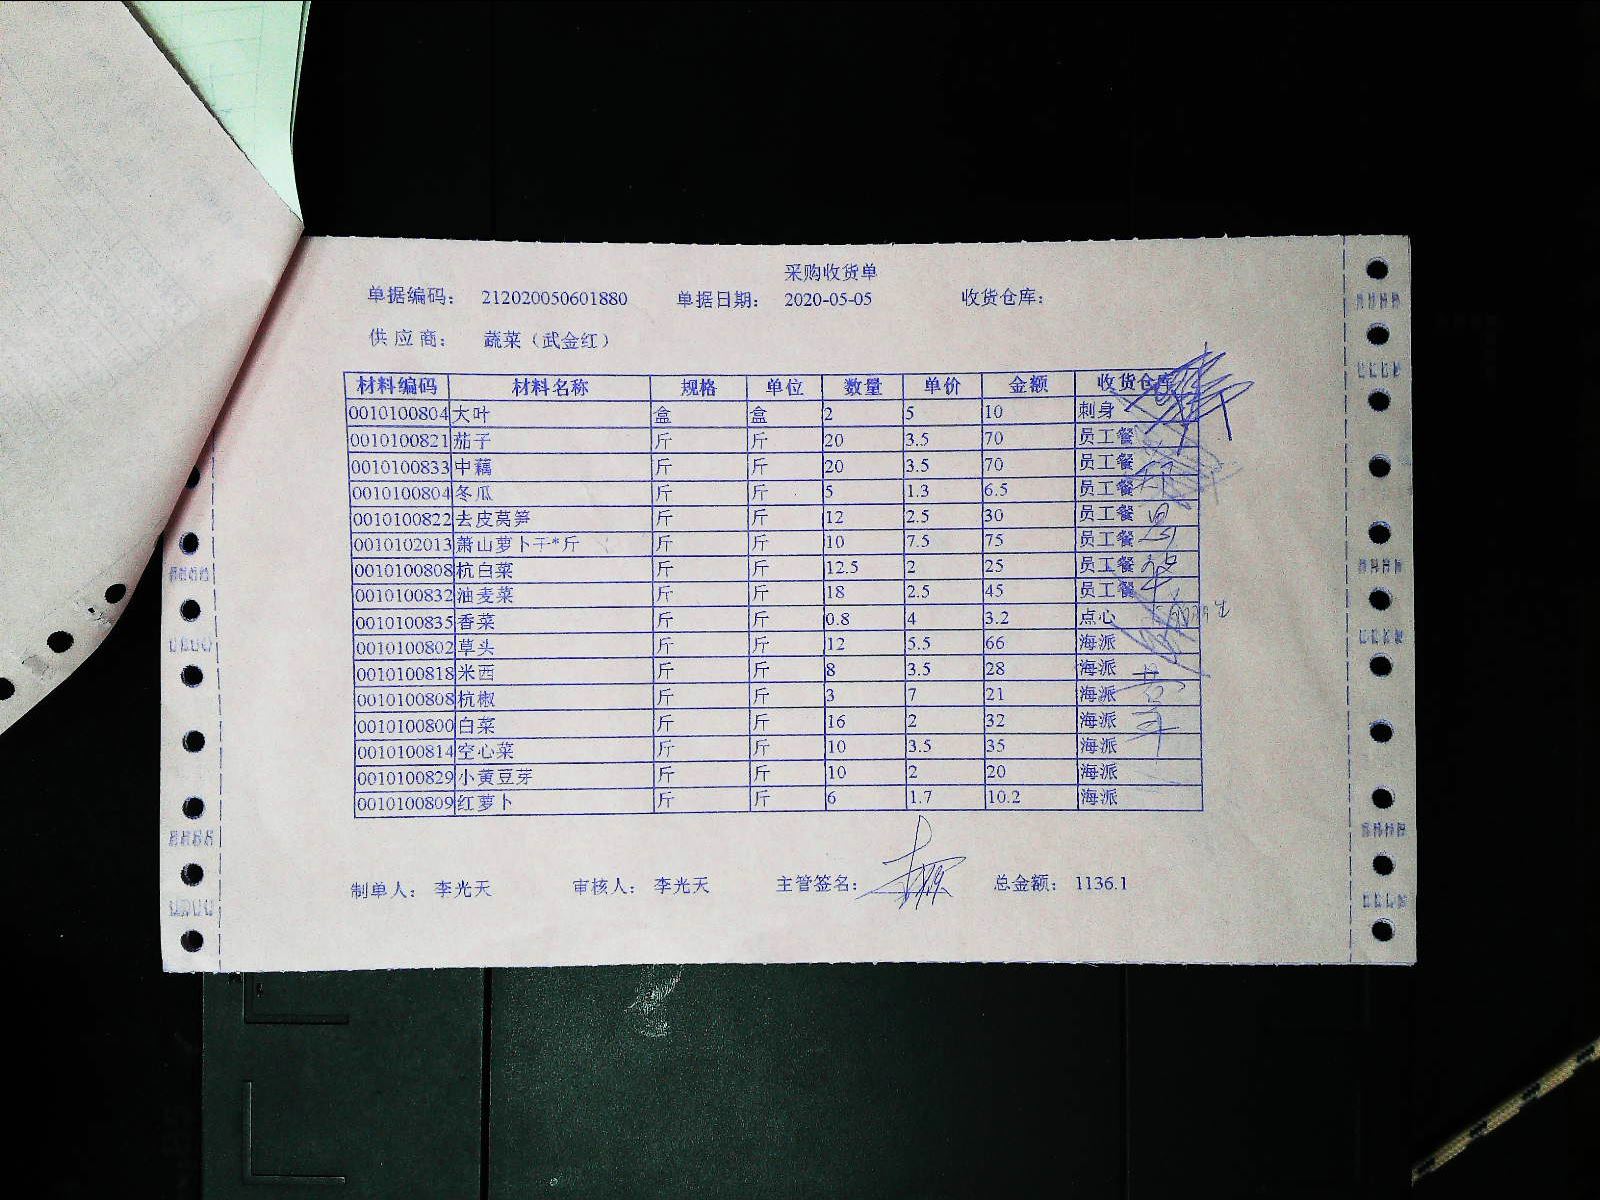 采购收货单
单据编码： 212020050601880 单据日期： 2020-05-05 收货仓库：
供应商： 蔬菜（武金红）
材料编码 材料名称 规格 单位 数量 单价 金额 收货仓库
0010100804 大叶 盒 盒 2 5 10 刺身
0010100821 茄子 斤 斤 20 3.5 70 员工餐
0010100833 中藕 斤 斤 20 3.5 70 员工餐
0010100804 冬瓜 斤 斤 5 1.3 6.5 员工餐
0010100822 去皮莴笋 斤 斤 12 2.5 30 员工餐
0010102013 萧山萝卜干*斤 斤 斤 10 7.5 75 员工餐
0010100808 杭白菜 斤 斤 12.5 2 25 员工餐
0010100832 油麦菜 斤 斤 18 2.5 45 员工餐
0010100835 香菜 斤 斤 0.8 4 3.2 点心
0010100802 草头 斤 斤 12 5.5 66 海派
0010100818 米西 斤 斤 8 3.5 28 海派
0010100808 杭椒 斤 斤 3 7 21 海派
0010100800 白菜 斤 斤 16 2 32 海派
0010100814 空心菜 斤 斤 10 3.5 35 海派
0010100829 小黄豆芽 斤 斤 10 2 20 海派
0010100809 红萝卜 斤 斤 6 1.7 10.2 海派
制单人： 李光天 审核人： 李光天 主管签名： 总金额： 1136.1